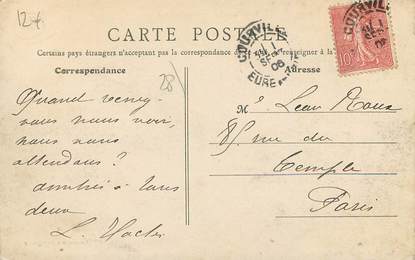 12€
CARTE POSTALE
Certains pays étrangers n'acceptant pas la correspondance de se renseigner à la
Correspondance
Adresse
28
COURVILLE
SEPT
06
EURE
COURVILLE
SEPT
06
10c
Quand venez-
vous nous voir,
nous vous
attendons ?
amitiés à tous
deux
L.
M Léon Roux
85 rue du
Temple
Paris